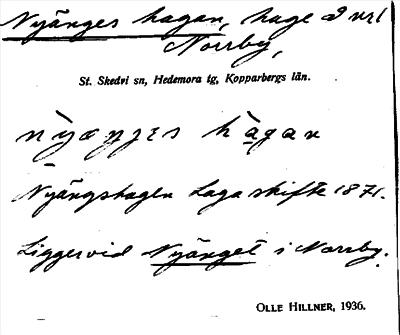 Nyänges hagan, hage 2 url
Norrby,
St. Skedvi sn, Hedemora tg, Kopparbergs län.
Nyängshagen Laga skifte 1871.
Ligger vid Nyänget i Norrby.
OLLE HILLNER, 1936.